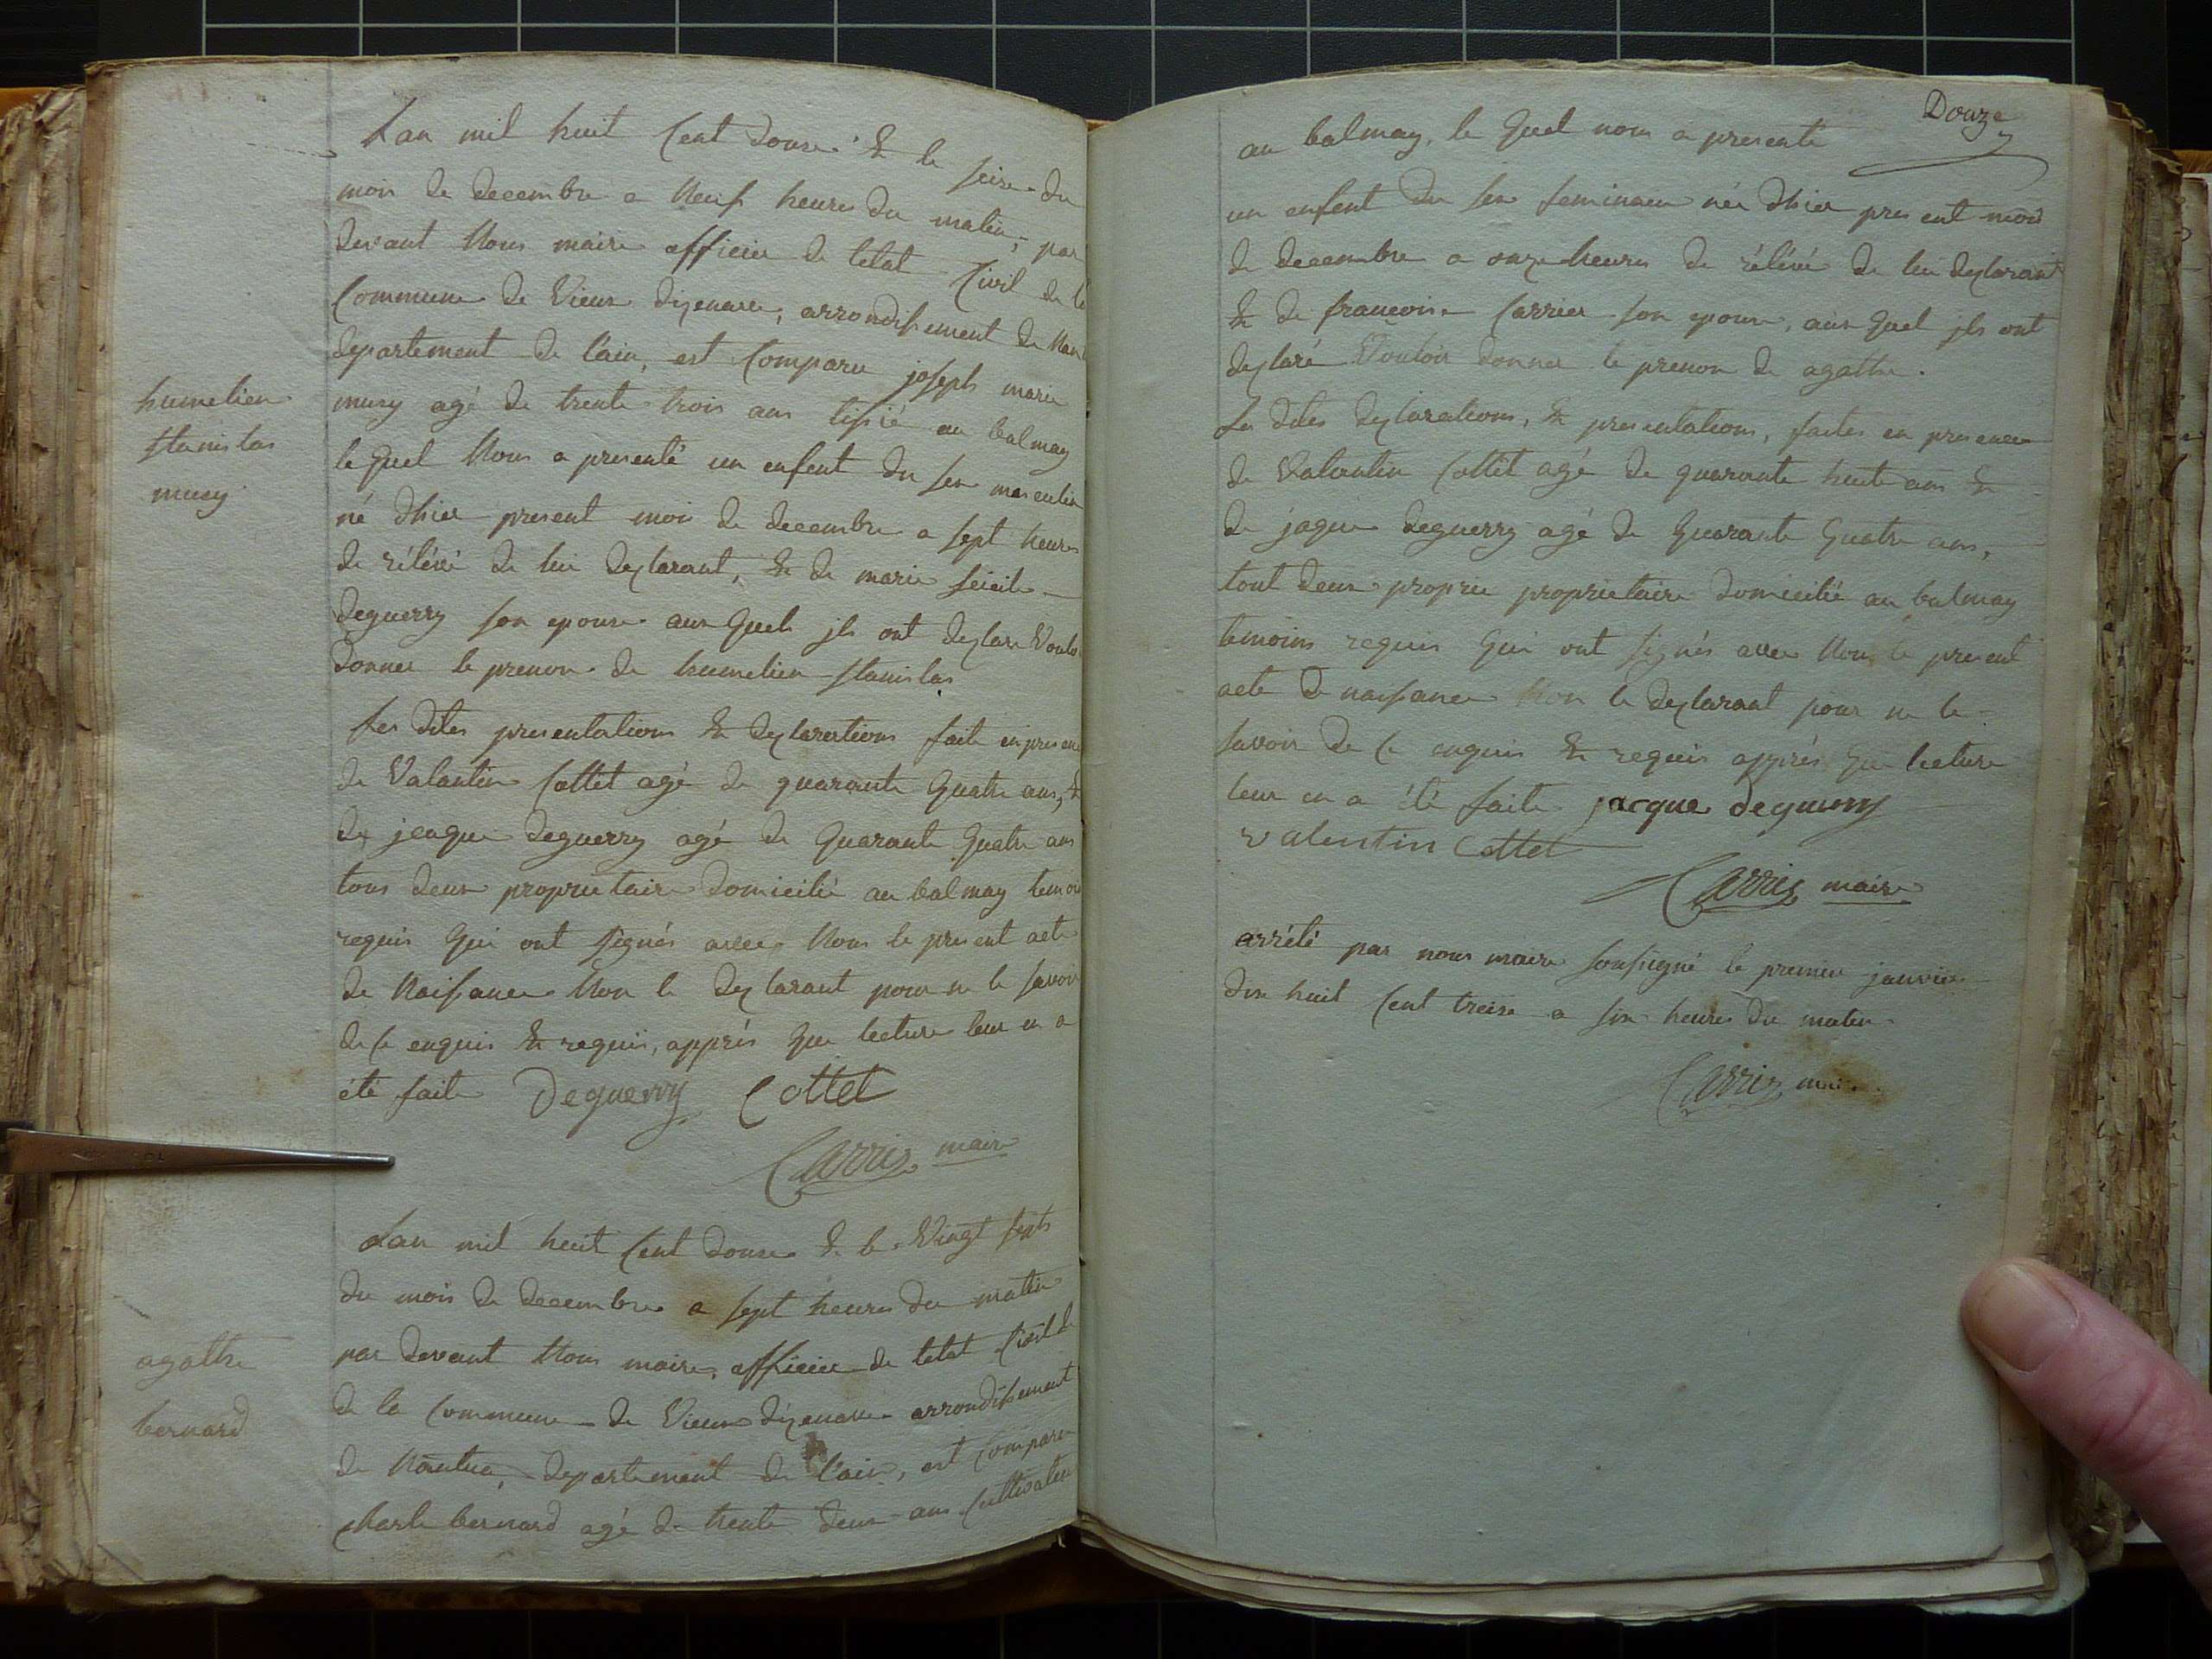 Lan mil huit Cent douze & le seize du
mois de decembre a Neuf heures du matin, par
devant Nous maire officier de letat Civil de la
Commune de Vieux dizenave, arrondissement de Nan
departement de l'ain, est Comparu joseph marie
humelien
stanislas
mury
mury agé de trente trois ans tissié au balmay
le quel Nous a presenté un enfent du sex masculin
né dhier present mois de decembre a sept heures
de rélévé de lui declarant, & de marie
deguerry son epouse aux quels jls ont declare Voulo
donner le prenom de humelien stanislas
les dites presentations & declarations faite en presence
de Valantin Cottet agé de quarante quatre ans, &
de jeaque deguerry agé de quarante quatre ans
tous deux proprietaire domicilié au balmay temoin
requis qui ont signés avec Nous le present acte
de Naissance Non le declarant pour ne le savoir
de ce enquis & requis, apprés que lecture leur en a
été faite Deguerry Cottet
Carrier maire
Lan mil huit Cent douze & le Vingt sept
du mois de decembre a sept heures du matin
par devant Nous maire, officier de letat Civil
agathe
bernard
de la Commune de Vieux dizenave arrondissement
de Nantua, departement de l'ain, est Comparu
charle bernard agé de trente deux ans Cultivateur
Douze
au balmay, le quel nous a presenté
un enfent du sex feminaen née dhier present mois
de decembre a onze heures de rélévé de lui declarant
& de francoise Carrier son epouse, aux quel jls ont
declaré Vouloir donner le prenom de agathe.
Les dites declarations, & presentations, faites en presence
de Valantin Cottet agé de quarante huite ans &
de jaque deguerry agé de quarante quatre ans,
tout deux proprie proprietaire domicilié au balmay
temoins requis qui ont signés avec Nous le present
acte de naissance Non le declarant pour ne le
savoir de ce enquis & requis apprés que lecture
leur en a été faite jacque deguerry
valentin Cottet
Carrier maire
arrété par nous maire soussigné le premier janvier
dix huit Cent treize a six heures du matin
Carrier maire